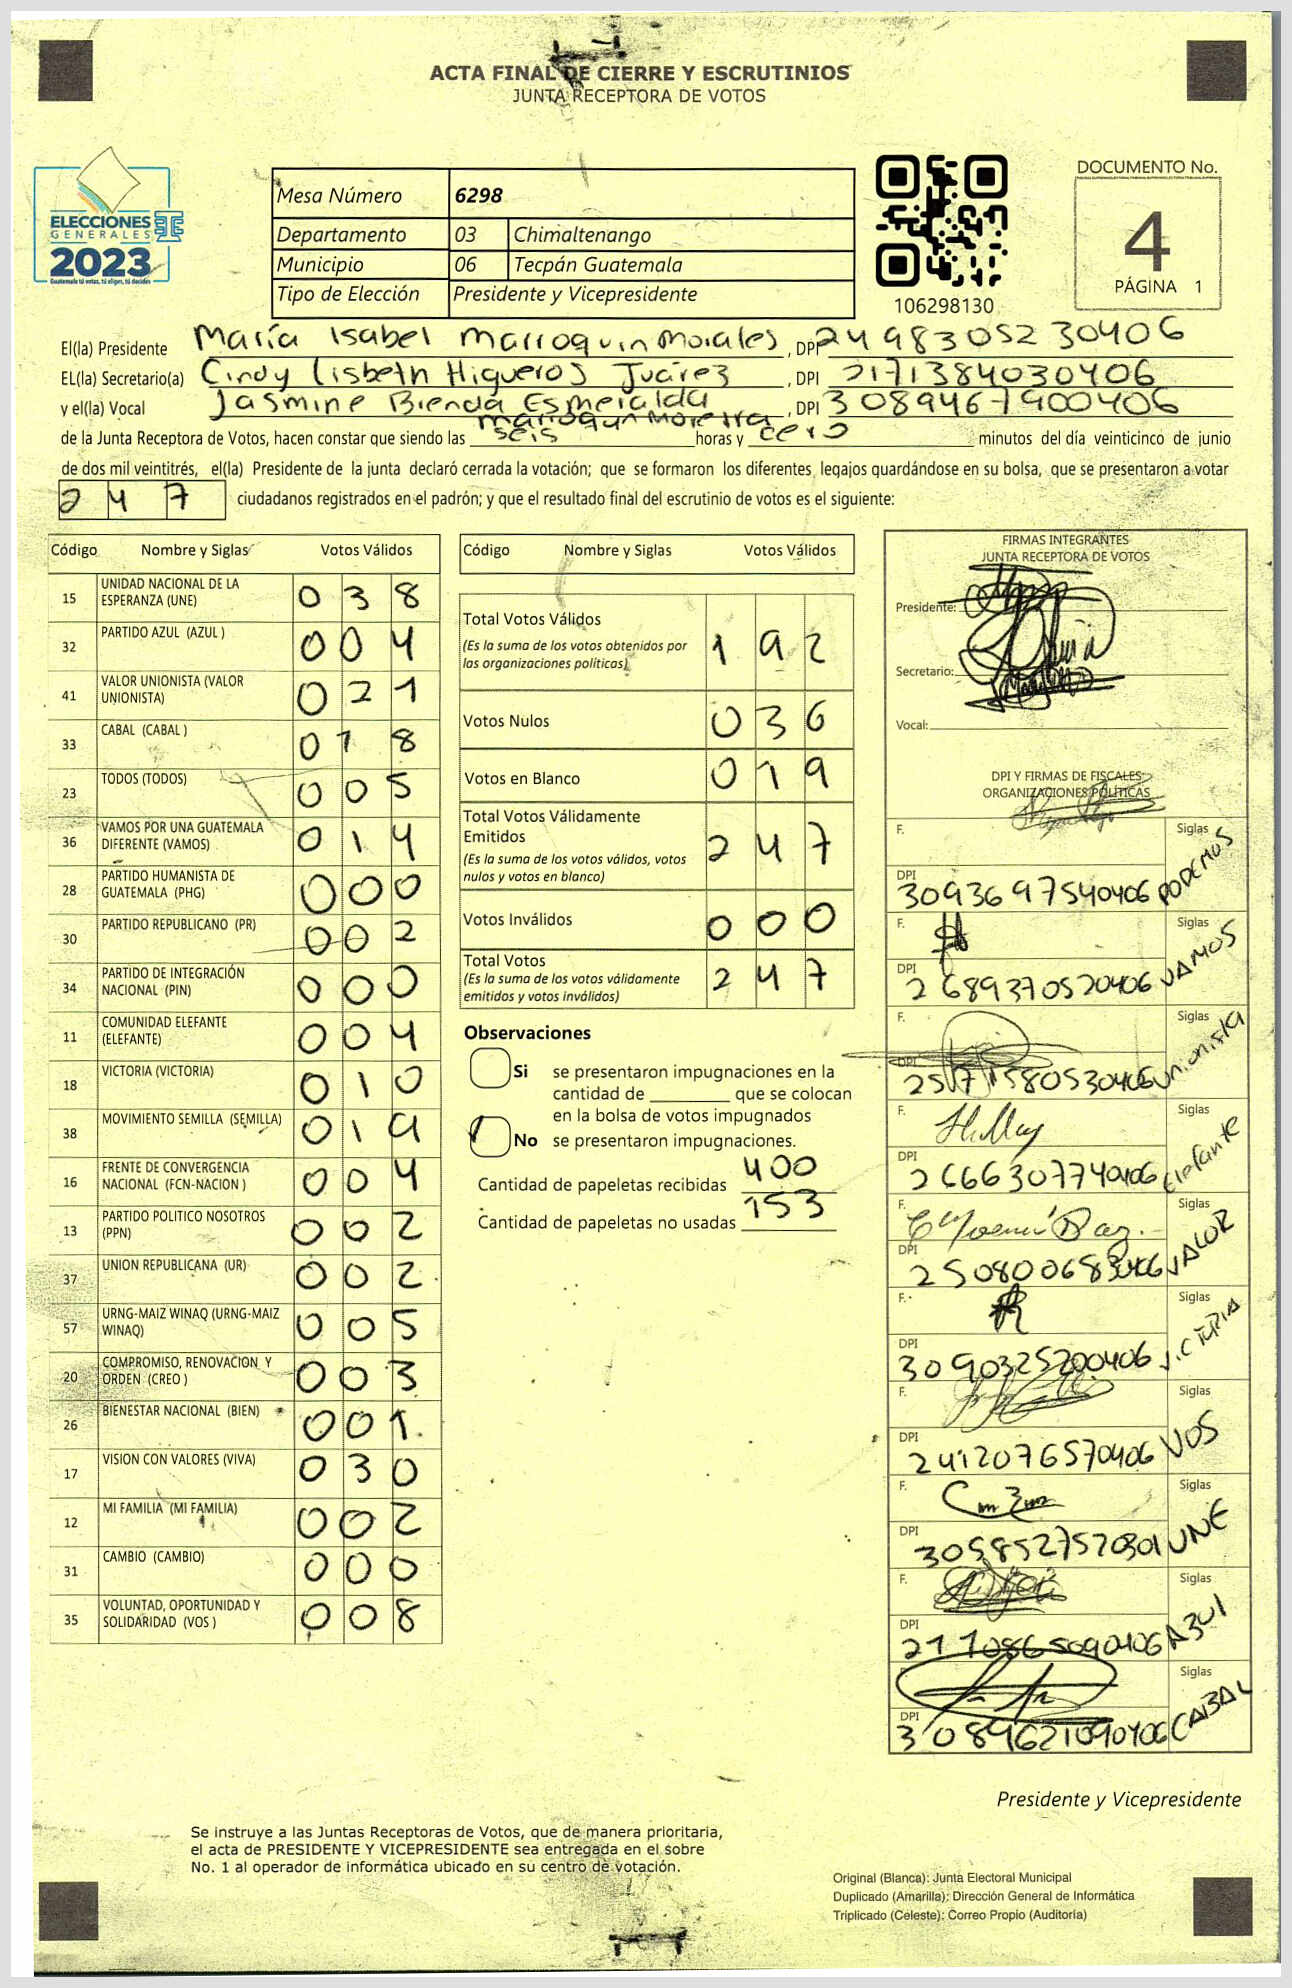 ACTA FINAL DE CIERRE Y ESCRUTINIOS
JUNTA RECEPTORA DE VOTOS
ELECCIONES
GENERALES
2023
Guatemala tú votas, tú eliges, tú decides
Mesa Número 6298
Departamento 03 Chimaltenango
Municipio 06 Tecpán Guatemala
Tipo de Elección Presidente y Vicepresidente
106298130
DOCUMENTO No.
4
PÁGINA 1
El(la) Presidente María Isabel Marroquin Morales, DPI 2498305230406
EL(la) Secretario(a) Cindy Lisbeth Higueros Juárez, DPI 2171384030406
y el(la) Vocal Jasmine Brenda Esmeralda, DPI 3089467900406
de la Junta Receptora de Votos, hacen constar que siendo las seis horas y cero minutos del día veinticinco de junio
de dos mil veintitrés, el(la) Presidente de la junta declaró cerrada la votación; que se formaron los diferentes legajos guardándose en su bolsa, que se presentaron a votar
247 ciudadanos registrados en el padrón; y que el resultado final del escrutinio de votos es el siguiente:
Código Nombre y Siglas Votos Válidos
15 UNIDAD NACIONAL DE LA ESPERANZA (UNE) 038
32 PARTIDO AZUL (AZUL ) 004
41 VALOR UNIONISTA (VALOR UNIONISTA) 021
33 CABAL (CABAL ) 018
23 TODOS (TODOS) 005
36 VAMOS POR UNA GUATEMALA DIFERENTE (VAMOS) 014
28 PARTIDO HUMANISTA DE GUATEMALA (PHG) 000
30 PARTIDO REPUBLICANO (PR) 002
34 PARTIDO DE INTEGRACIÓN NACIONAL (PIN) 000
11 COMUNIDAD ELEFANTE (ELEFANTE) 004
18 VICTORIA (VICTORIA) 010
38 MOVIMIENTO SEMILLA (SEMILLA) 019
16 FRENTE DE CONVERGENCIA NACIONAL (FCN-NACION ) 004
13 PARTIDO POLITICO NOSOTROS (PPN) 002
37 UNION REPUBLICANA (UR) 002
57 URNG-MAIZ WINAQ (URNG-MAIZ WINAQ) 005
20 COMPROMISO, RENOVACION Y ORDEN (CREO ) 003
26 BIENESTAR NACIONAL (BIEN) 001
17 VISION CON VALORES (VIVA) 030
12 MI FAMILIA (MI FAMILIA) 002
31 CAMBIO (CAMBIO) 000
35 VOLUNTAD, OPORTUNIDAD Y SOLIDARIDAD (VOS ) 008
Código Nombre y Siglas Votos Válidos
Total Votos Válidos 192
(Es la suma de los votos obtenidos por
las organizaciones políticas)
Votos Nulos 036
Votos en Blanco 019
Total Votos Válidamente
Emitidos 247
(Es la suma de los votos válidos, votos
nulos y votos en blanco)
Votos Inválidos 000
Total Votos 247
(Es la suma de los votos válidamente
emitidos y votos inválidos)
Observaciones
Si se presentaron impugnaciones en la
cantidad de ________ que se colocan
en la bolsa de votos impugnados
No se presentaron impugnaciones.
Cantidad de papeletas recibidas 400
Cantidad de papeletas no usadas 153
FIRMAS INTEGRANTES
JUNTA RECEPTORA DE VOTOS
Presidente:
Secretario:
Vocal:
DPI Y FIRMAS DE FISCALES
ORGANIZACIONES POLÍTICAS
F. Siglas
DPI 3093697540406 PODEMOS
F. Siglas
DPI 2689370520406 VAMOS
F. Siglas
DPI 2571580530406 Unionista
F. Siglas
DPI 2666307740406 Elefante
F. Siglas
DPI VALOR
F. Siglas
DPI 3090325200406 VICTORIA
F. Siglas
DPI 2412076570406 VOS
F. Siglas
DPI 3058527520301 UNE
F. Siglas
DPI AZUL
Siglas
DPI 3089621090406 CABAL
Presidente y Vicepresidente
Se instruye a las Juntas Receptoras de Votos, que de manera prioritaria,
el acta de PRESIDENTE Y VICEPRESIDENTE sea entregada en el sobre
No. 1 al operador de informática ubicado en su centro de votación.
Original (Blanca): Junta Electoral Municipal
Duplicado (Amarilla): Dirección General de Informática
Triplicado (Celeste): Correo Propio (Auditoría)